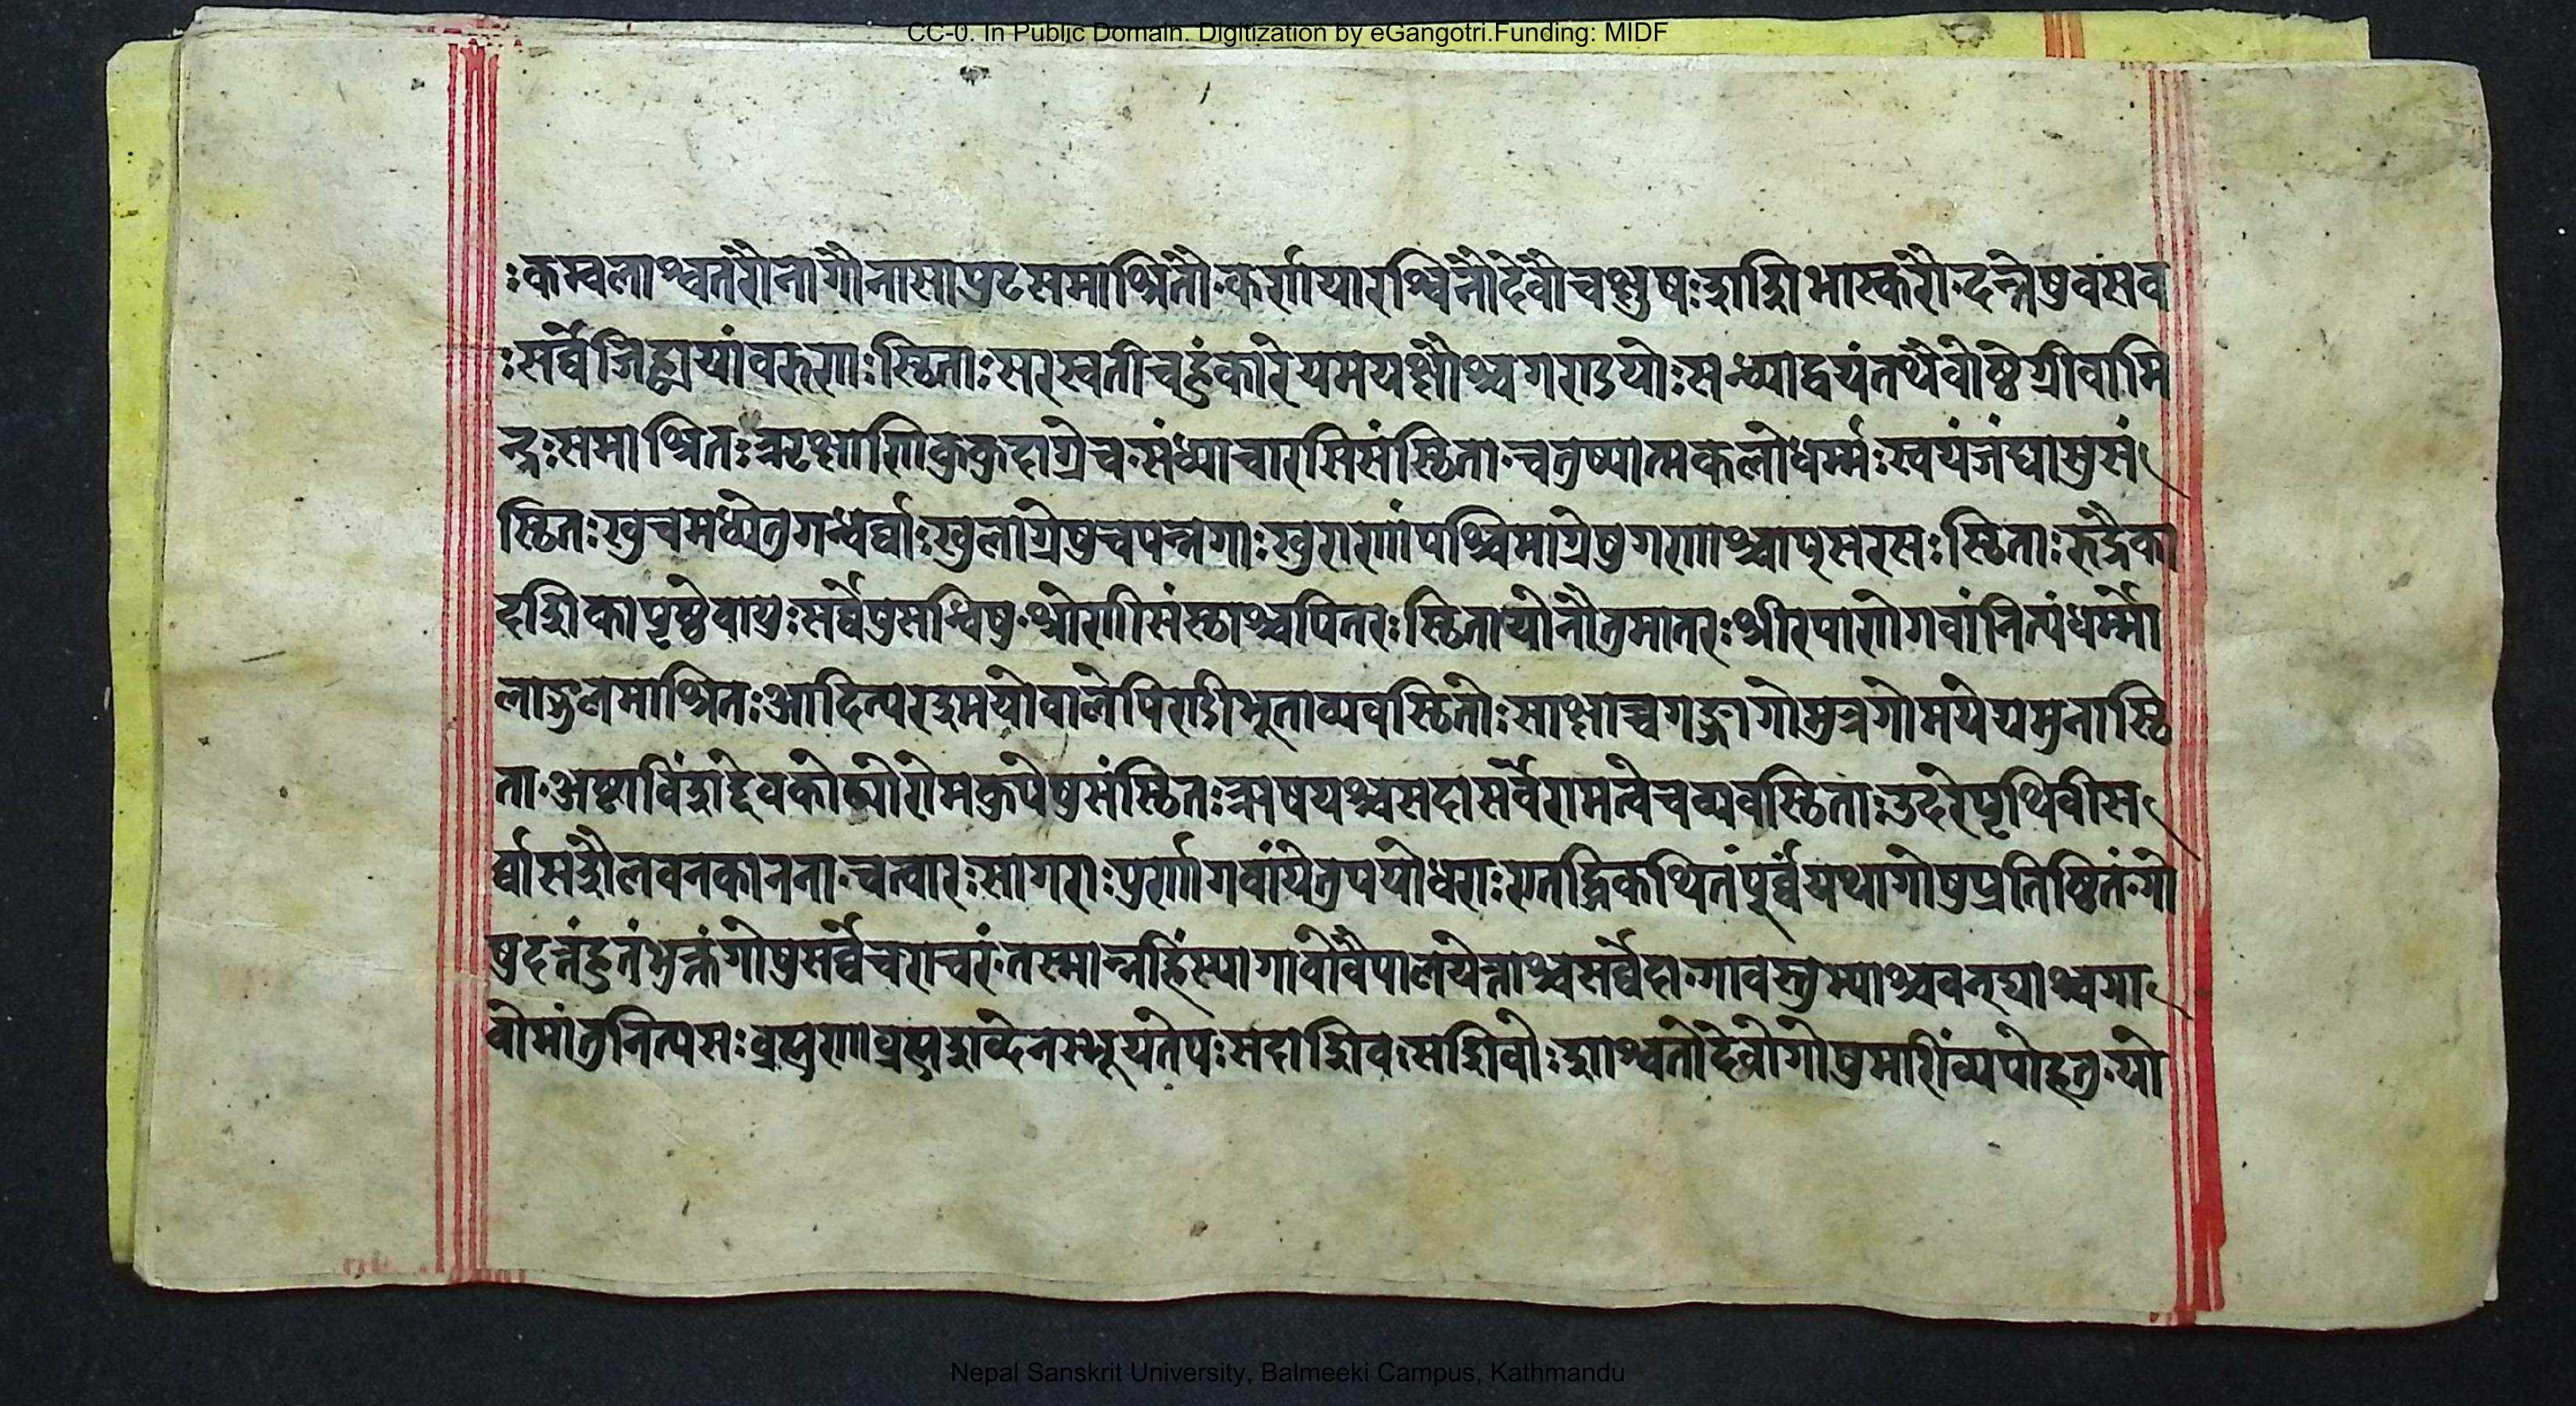 CC-0. In Public Domain. Digitization by eGangotri.Funding: MIDF
ःकम्वलाश्वतरौनागौनासापुटसमाश्रितौ॰कर्णायारश्विनौदेवौचक्षुषःशशिभास्करौ॰दन्तेषुवसव
ःसर्व्वेजिह्वायांवरुणःस्थिताःसरस्वतीचहुंकारेयमयक्षौश्चगण्डयोःसन्ध्याद्वयंतथैवोष्ठेग्रीवामि
न्द्रःसमाश्रितःऋक्षाणिकुकुदाग्रेच॰संध्याचोरसिसंस्थिता॰चतुष्पात्मकलोधर्म्मःस्वयंजंघासुसं
स्थितःखुचमध्येतुगन्धर्व्वाःखुलाग्रेषुचपन्नगाःखुराणांपश्चिमाग्रेषुगणाश्चाप्सरसःस्थिताःरुद्रैका
दशिकापृष्ठेवायुःसर्वेषुसन्धिषु॰श्रोणीसंस्थाश्चपितरःस्थितायोनौतुमातरःश्रीरपाणेगवांनित्यंधर्म्मो
लाङ्गुलमाश्रितःआदित्यरश्मयोवालेपिण्डीभूताव्यवस्थितोःसाक्षाच्चगङ्गागोमुत्रगोमयेयमुनास्थि
ता॰अष्टाविंशद्देवकोट्योरोमकुपेषुसंस्थितःऋषयश्चसदासर्वेरामत्वेचव्यवस्थिताःउदरेपृथिवीस
र्व्वासशैलवनकानना॰चत्वारःसागराःपुर्णागवांयेतुपयोधराःएतद्धिकथितंपूर्व्वंयथागोषुप्रतिष्ठितं॰गो
षुदत्तंहुतंभुक्तंगोषुसर्व्वेचराचरं॰तस्मान्नहिंस्यागावोवैपालयेत्ताश्चसर्व्वेदा॰गावस्तुम्याश्चवन्द्याश्चगा
वोमांतुनित्यसःव्रह्मणाव्रह्मशव्देनस्भूयतेयःसदाशिवःसशिवोःशाश्वतोदेवोगोषुमाणिंव्यपोहतु॰यो
Nepal Sanskrit University, Balmeeki Campus, Kathmandu